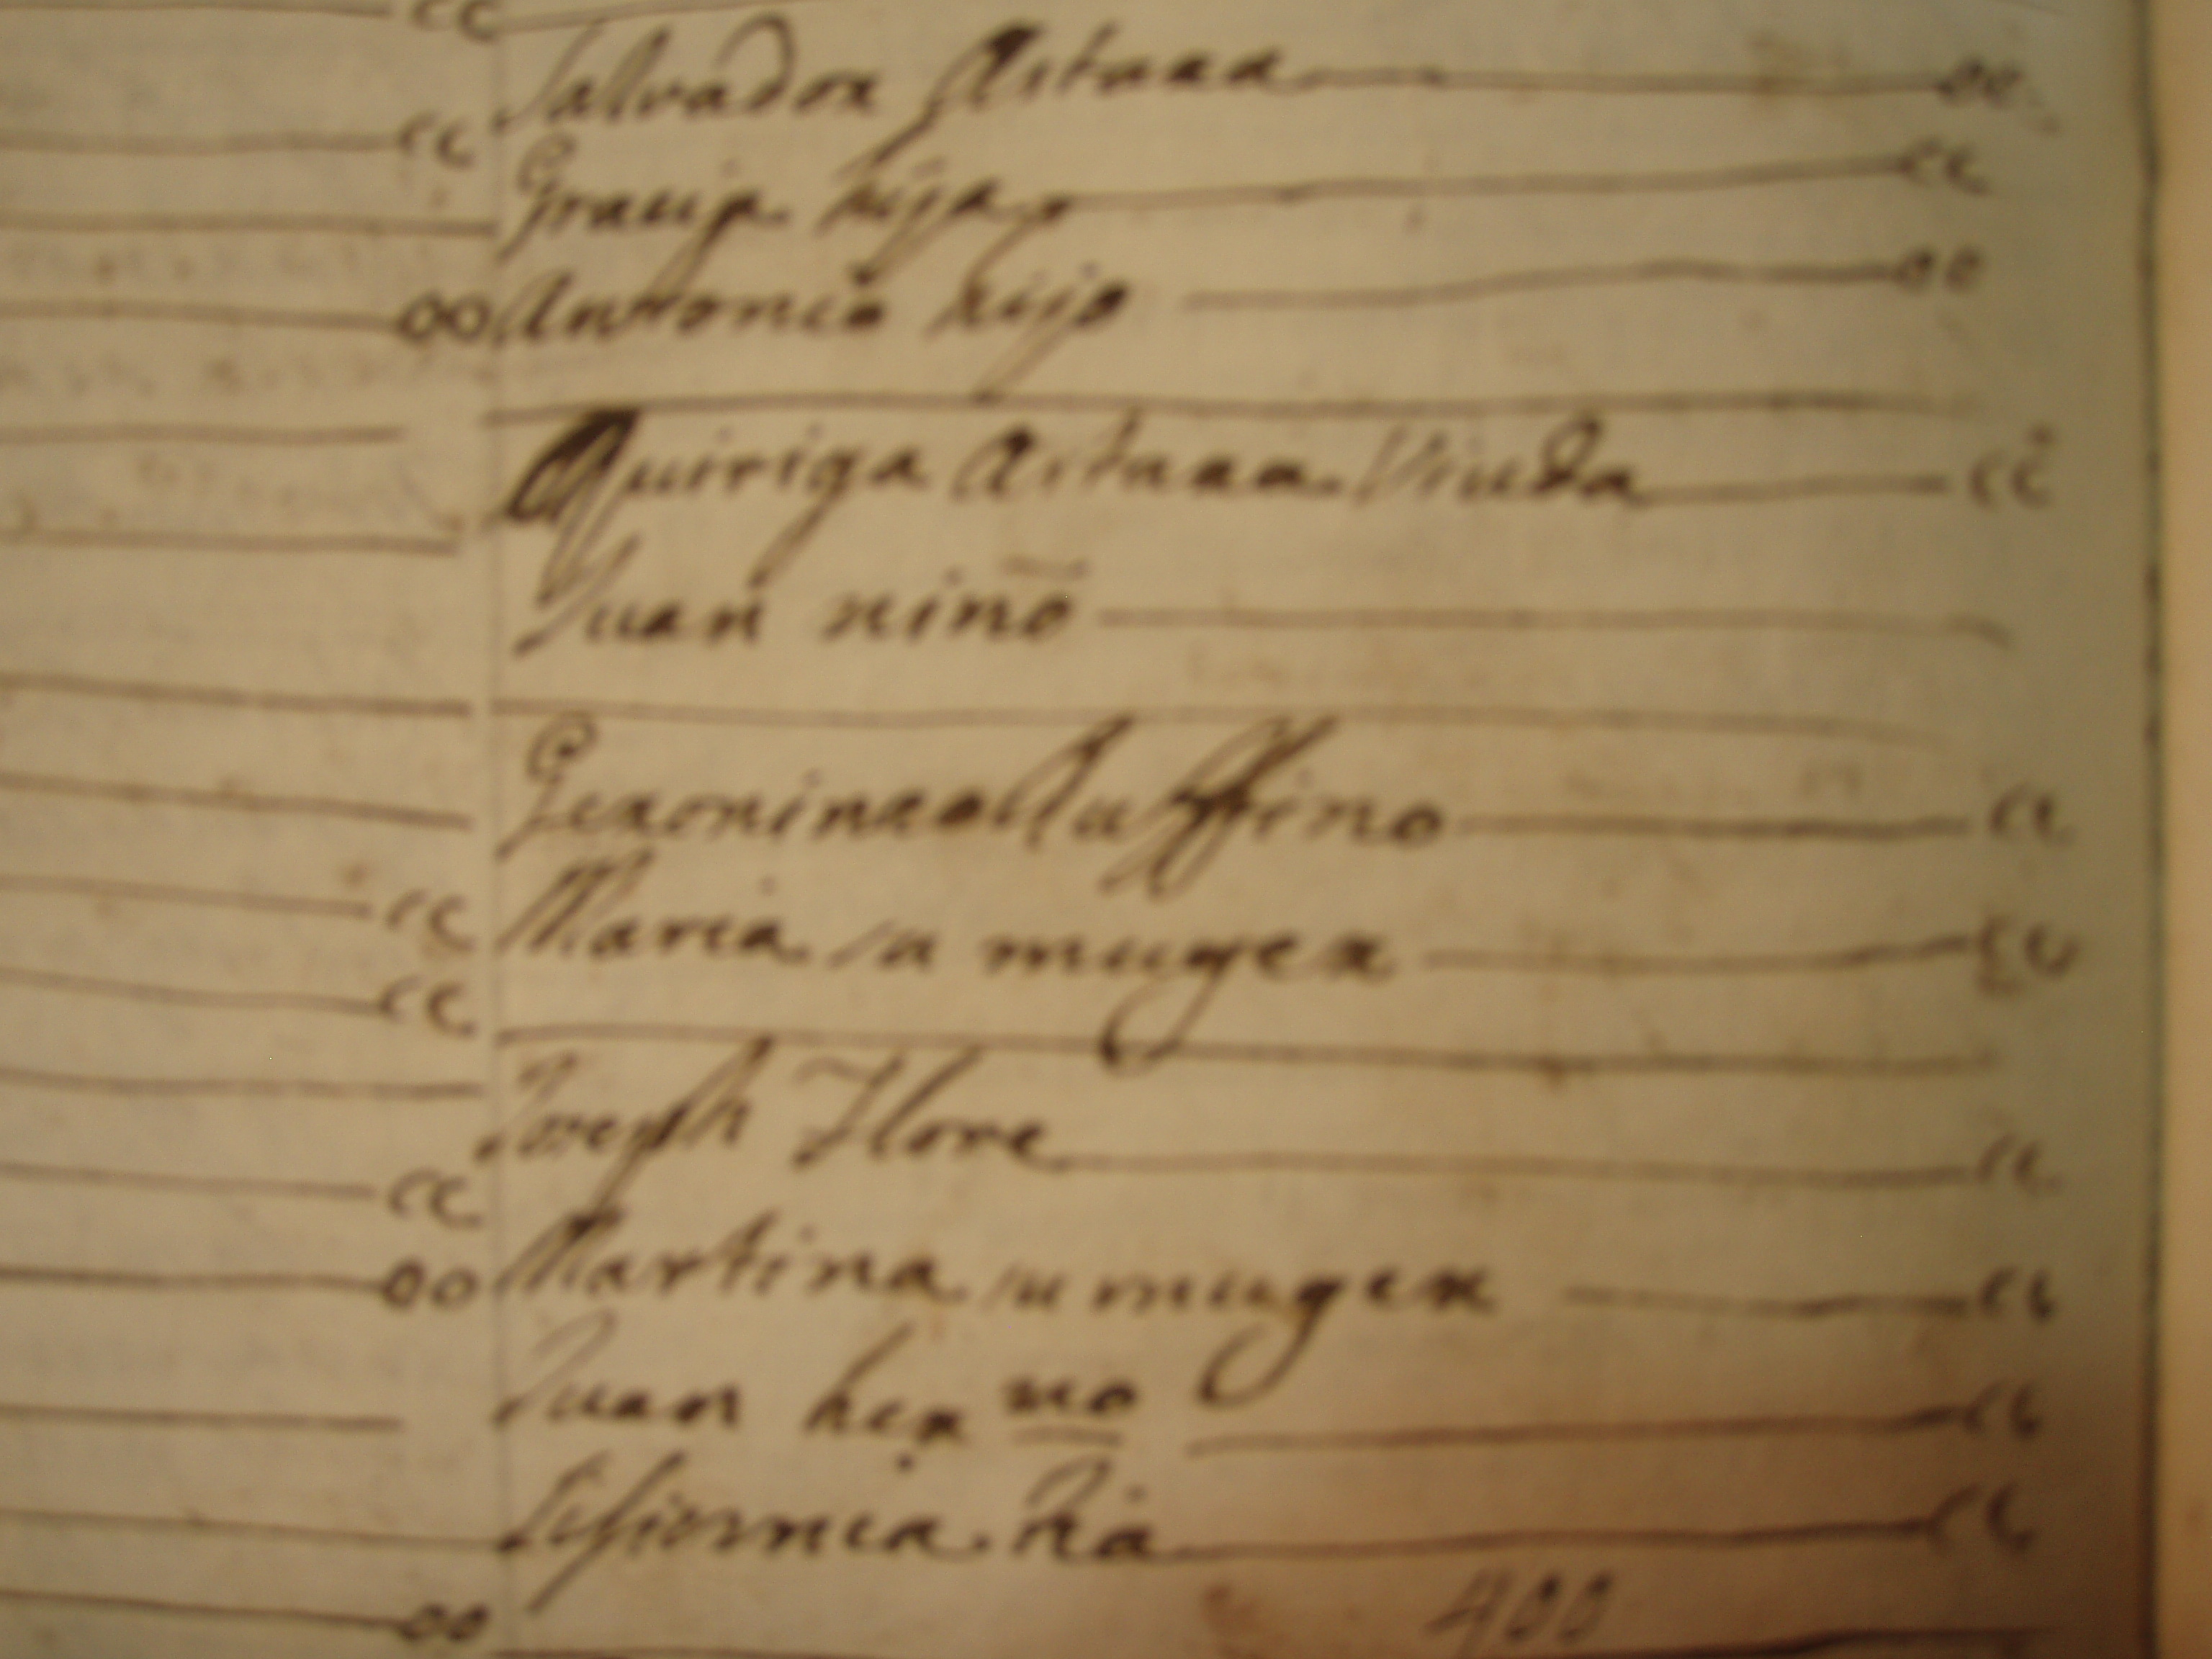 cc
Salvador Aitana oo
cc
Gracia hija cc
oo Antonio hijo oo
Quiriga Aitana Viuda cc
Juan niño
Geronimo Ruffino cc
cc Maria su muger cc
cc
Joseph Flore cc
cc
oo Martina su muger cc
Juan her mo cc
Sifiornia tia cc
400
oo